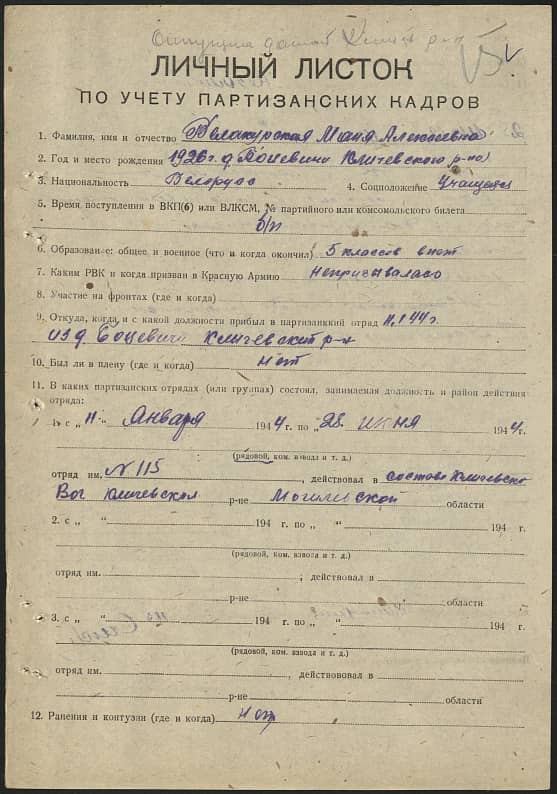 ЛИЧНЫЙ ЛИСТОК
ПО УЧЕТУ ПАРТИЗАНСКИХ КАДРОВ
1. Фамилия, имя и отчество Белакурская Маня Алексеевна
2. Год и место рождения 1926 г. д. Боцевичи Кличевского р-на
3. Национальность Белорус 4. Соцположение Учащаяся
5. Время поступления в ВКП(б) или ВЛКСМ, № партийного или комсомольского билета
б/п
6. Образование: общее и военное (что и когда окончил) 5 классов в нет
7. Каким РВК и когда призван в Красную Армию Непризывалась
8. Участие на фронтах (где и когда)
9. Откуда, когда и с какой должности прибыл в партизанский отряд 11.1 44 г.
из д. Боцевичи Кличевский р-н
10. Был ли в плену (где и когда) нет
11. В каких партизанских отрядах (или группах) состоял, занимаемая должность и район действия
отряда:
1. с „ 11 “ Января 1944 г. по „ 28 “ июня 1944 г.
(рядовой, ком. взвода и т. д.)
отряд им. № 115, действовал в составе Кличевско
Вог Кличевская р-не Могилевской области
2. с „ “ 194 г. по „ “ 194 г.
(рядовой, ком. взвода и т. д.)
отряд им. ; действовал в
р-не области
3. с „ “ 194 г. по „ “ 194 г.
(рядовой, ком. взвода и т. д.)
отряд им. ; действововал в
р-не области
12. Ранения и контузии (где и когда) нет